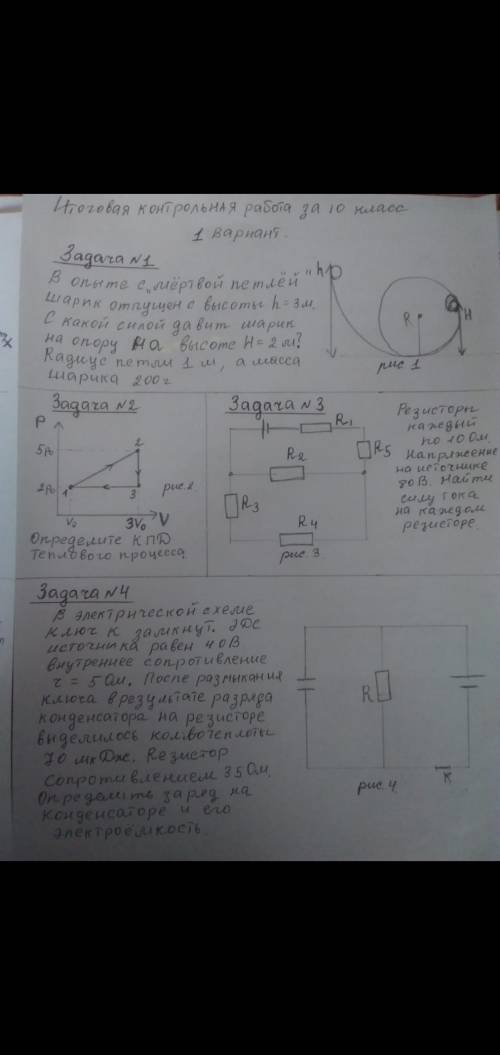 Итоговая контрольная работа за 10 класс
1 вариант.
Задача №1
В опыте с „мёртвой петлёй"
шарик отпущен с высоты h = 3м.
С какой силой давит шарик
на опору на высоте H = 2 м?
Rадиус петли 1 м, а масса
шарика 200г
h
R
H
рис 1
Задача №2
P
5p₀
2p₀
1
2
3
V₀
3V₀
V
рис.2.
Определите КПД
теплового процесса
Задача №3
R₁
R₂
R₅
R₃
R₄
рис. 3
Резисторы
каждый
по 10 Ом.
Напряжение
на источнике
80В. Найти
силу тока
на каждом
резисторе.
Задача №4
В электрической схеме
ключ К замкнут. ЭДС
источника равен 40В
внутреннее сопротивление
r = 5 Ом. После размыкания
ключа в результате разряда
конденсатора на резисторе
выделилось кол.во теплоты
70 мкДж. Rезистор
сопротивлением 35 Ом.
Определить заряд на
конденсаторе и его
электроёмкость.
R
К
рис. 4.